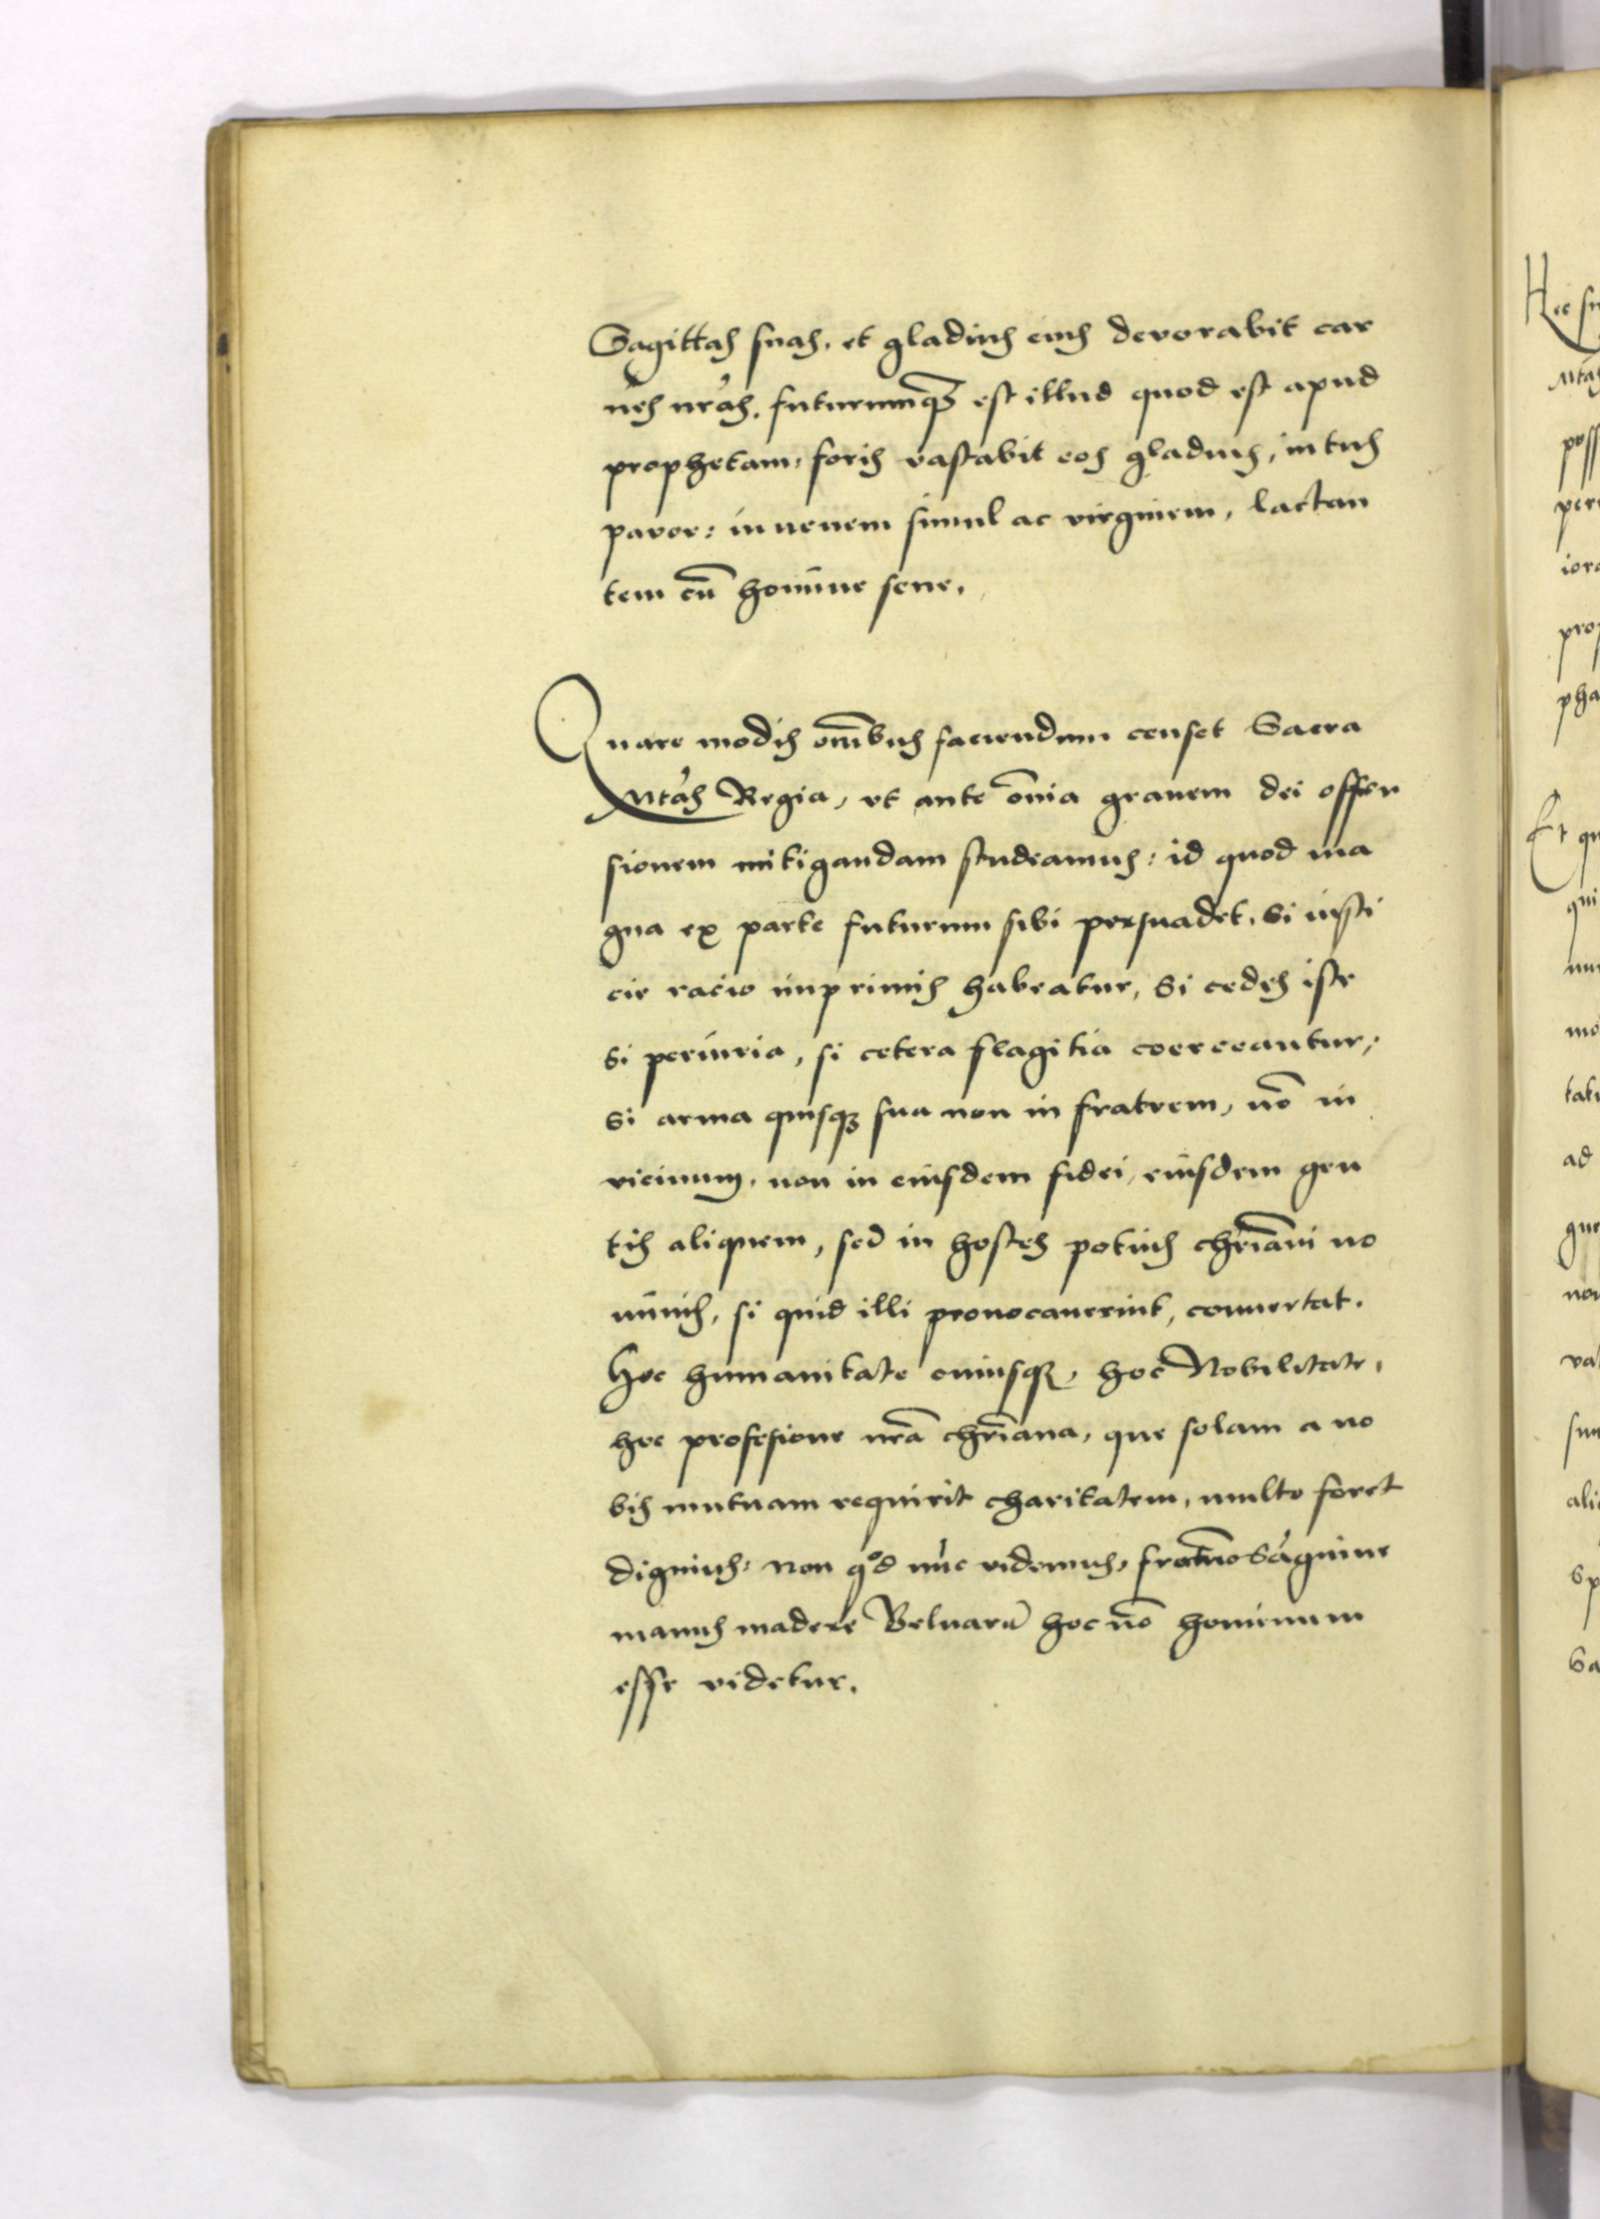 Sagittas suas, et gladius eius devorabit car
nes nr̃as. futurumq̃ est illud quod est apud
prophetam, foris vastabit eos gladius, intus
pavor: iuvenem simul ac virginem, lactan
tem cū homine sene.
Quare modis om̄ibus faciendum censet Sacra
Mtas Regia, vt ante om̄ia grauem dei offen
sionem mitigandam studeamus: id quod ma
gna ex parte futurum sibi persuadet, Si iusti
cie racio inprimis habeatur, Si cedes iste
Si periuria, si cetera flagitia coerceantur,
Si arma quisq; sua non in fratrem, nō in
vicinum, non in eiusdem fidei, eiusdem gen
tis aliquem, sed in hostes potius chr̄iani no
minis, si quid illi prouocauerint, conuertat.
Hec humanitate cuiusq;, hec Nobilitate,
hec profesione nr̄a chr̄iana, que solam a no
bis mutuam requirit charitatem, multo foret
dignius, non qͦd nūc videmus, fraterno Sāguine
manus madere Beluarū hoc nō hominum
esse videtur.
Hec
Mtas
poss
per
pro
pha
Et qu
qui
mo
ad
que
non